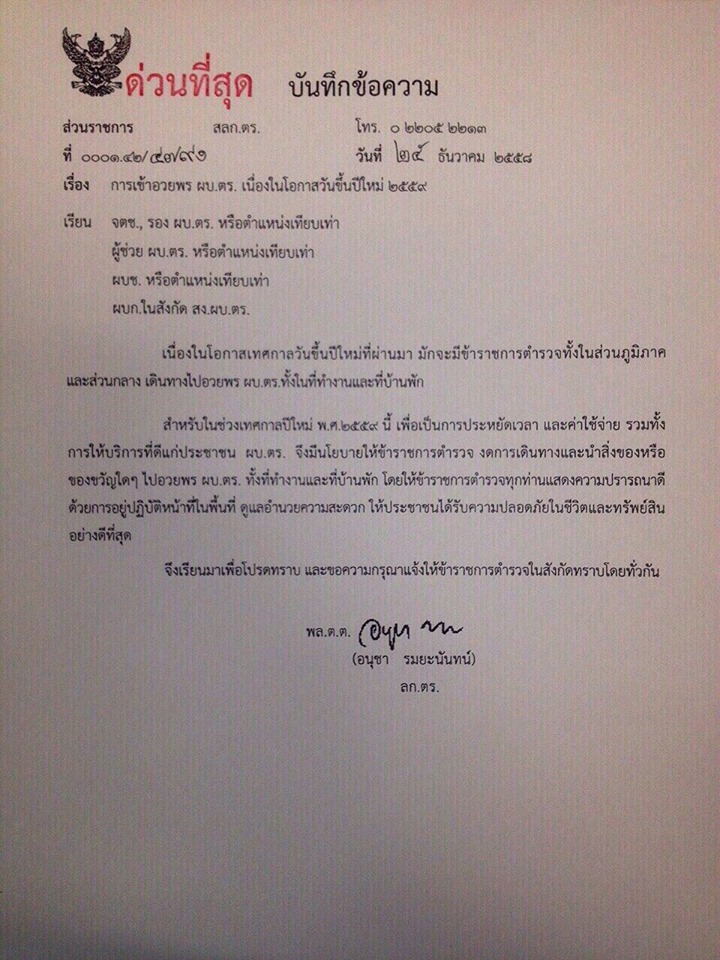 ด่วนที่สุด บันทึกข้อความ
ส่วนราชการ สลก.ตร. โทร. ๐ ๒๒๐๕ ๒๒๑๓
ที่ ๐๐๐๑.๔๒/ วันที่ ๒๔ ธันวาคม ๒๕๕๘
เรื่อง การเข้าอวยพร ผบ.ตร. เนื่องในโอกาสวันขึ้นปีใหม่ ๒๕๕๙
เรียน จตช., รอง ผบ.ตร. หรือตำแหน่งเทียบเท่า
ผู้ช่วย ผบ.ตร. หรือตำแหน่งเทียบเท่า
ผบช. หรือตำแหน่งเทียบเท่า
ผบก.ในสังกัด สง.ผบ.ตร.
เนื่องในโอกาสเทศกาลวันขึ้นปีใหม่ที่ผ่านมา มักจะมีข้าราชการตำรวจทั้งในส่วนภูมิภาค
และส่วนกลาง เดินทางไปอวยพร ผบ.ตร.ทั้งในที่ทำงานและที่บ้านพัก
สำหรับในช่วงเทศกาลปีใหม่ พ.ศ.๒๕๕๙ นี้ เพื่อเป็นการประหยัดเวลา และค่าใช้จ่าย รวมทั้ง
การให้บริการที่ดีแก่ประชาชน ผบ.ตร. จึงมีนโยบายให้ข้าราชการตำรวจ งดการเดินทางและนำสิ่งของหรือ
ของขวัญใดๆ ไปอวยพร ผบ.ตร. ทั้งที่ทำงานและที่บ้านพัก โดยให้ข้าราชการตำรวจทุกท่านแสดงความปรารถนาดี
ด้วยการอยู่ปฏิบัติหน้าที่ในพื้นที่ ดูแลอำนวยความสะดวก ให้ประชาชนได้รับความปลอดภัยในชีวิตและทรัพย์สิน
อย่างดีที่สุด
จึงเรียนมาเพื่อโปรดทราบ และขอความกรุณาแจ้งให้ข้าราชการตำรวจในสังกัดทราบโดยทั่วกัน
พล.ต.ต.
(อนุชา รมยะนันทน์)
ลก.ตร.